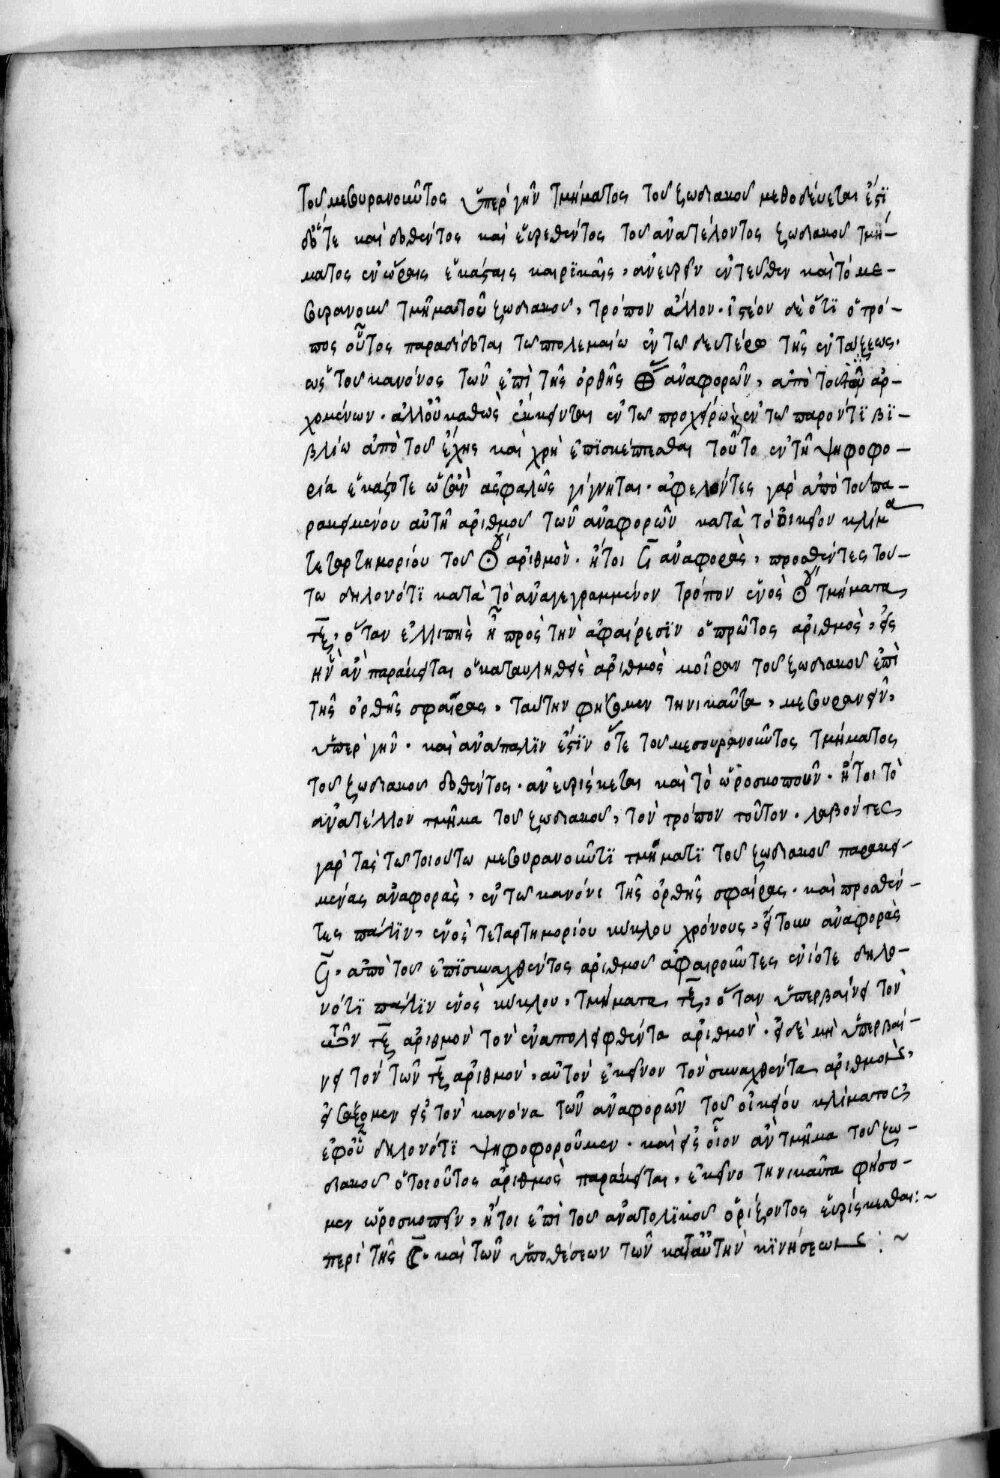 τοῦ μεσουρανοῦντος ὑπὲρ γῆν τμήματος τοῦ ζωδιακοῦ μεθοδεύεται ἐστὶ
δ' ὅτε καὶ δοθέντος καὶ εὑρεθέντος τοῦ ἀνατέλοντος ζωδιακοῦ τμή-
ματος ἐν ὥραις ἑκάσταις καιρικαῖς, ἀνευρεῖν ἐντεῦθεν καὶ τὸ με-
σουρανοῦν τμῆμα τοῦ ζωδιακοῦ, τρόπον ἄλλον. ἰστέον δὲ ὅτι ὁ τρό-
πος οὗτος παραδίδοται τῶ πτολεμαίω ἐν τῶ δευτέρω τῆς συντάξεως.
ὡς τοῦ κανόνος τῶν ἐπὶ τῆς ὀρθῆς ἀναφορῶν, ἀπὸ τούτου ἀρ-
χομένων. ἀλλ' οὐ καθὼς ἔκκεινται ἐν τῶ προχείρω κἀν τῶ παρόντι βι-
βλίω ἀπὸ τοῦ καὶ χρὴ ἐπισκέπτεσθαι τοῦτο ἐν τῆ ψηφοφο-
ρία ἑκάστοτε ὡς ἂν ἀσφαλῶς γίγνηται. ἀφελόντες γὰρ ἀπὸ τοῦ πα-
ρακειμένου αὐτῆ ἀριθμοῦ τῶν ἀναφορῶν κατὰ τὸ οἰκεῖον κλίμα
τεταρτημορίου τοῦ ἀριθμὸν. ἤτοι ϟ ἀναφορὰς, προσθέντες τού-
τω δηλονότι κατὰ τὸ ἀναγεγραμμένον τρόπον ἑνὸς τμήματα
τξ, ὅταν ἐλλιπὴς ἦ πρὸς τὴν ἀφαίρεσιν ὁ πρῶτος ἀριθμὸς, εἰς
ἣν ἂν παράκειται ὁ καταληφθεὶς ἀριθμὸς μοῖραν τοῦ ζωδιακοῦ ἐπὶ
τῆς ὀρθῆς σφαίρας, ταύτην φήσομεν τηνικαῦτα, μεσουρανεῖν,
ὑπὲρ γῆν. καὶ ἀνάπαλιν ἐστὶν ὅτε τοῦ μεσουρανοῦντος τμήματος
τοῦ ζωδιακοῦ δοθέντος. ἀνευρίσκεται καὶ τὸ ὡροσκοποῦν. ἤτοι τὸ
ἀνατέλλον τμῆμα τοῦ ζωδιακοῦ, τὸν τρόπον τοῦτον. λαβόντες
γὰρ τὰς τῶ τοιούτω μεσουρανοῦντι τμήματι τοῦ ζωδιακοῦ παρακει-
μένας ἀναφορὰς, ἐν τῶ κανόνι τῆς ὀρθῆς σφαίρας. καὶ προσθέν-
τες πάλιν, ἑνὸς τεταρτημορίου κύκλου χρόνους, ἤτοι ἀναφορὰς
ϟ. ἀπὸ τοῦ ἐπισυναχθέντος ἀριθμοῦ ἀφαιροῦντες ἐνίοτε δηλο-
νότι πάλιν ἑνὸς κύκλου, τμήματα τξ, ὅταν ὑπερβαίνει τὸν
τῶν τξ ἀριθμὸν τὸν ἐναπολειφθέντα ἀριθμὸν. εἰ δὲ μὴ ὑπερβαί-
νει τὸν τῶν τξ ἀριθμὸν, αὐτὸν ἐκεῖνον τὸν συναχθέντα ἀριθμὸν,
εἰσάξομεν εἰς τὸν κανόνα τῶν ἀναφορῶν τοῦ οἰκείου κλίματος
ἐφ' οὗ δηλονότι ψηφοφοροῦμεν. καὶ εἰς οἷον ἂν τμῆμα τοῦ ζω-
διακοῦ ὁ τοιοῦτος ἀριθμὸς παράκειται, ἐκεῖνο τηνικαῦτα φήσο-
μεν ὡροσκοπεῖν, ἤτοι ἐπὶ τοῦ ἀνατολικοῦ ὁρίζοντος εὑρίσκεσθαι:~
περὶ τῆς ☾. καὶ τῶν ὑποθέσεων τῶν κατ' αὐτὴν κινήσεως :~